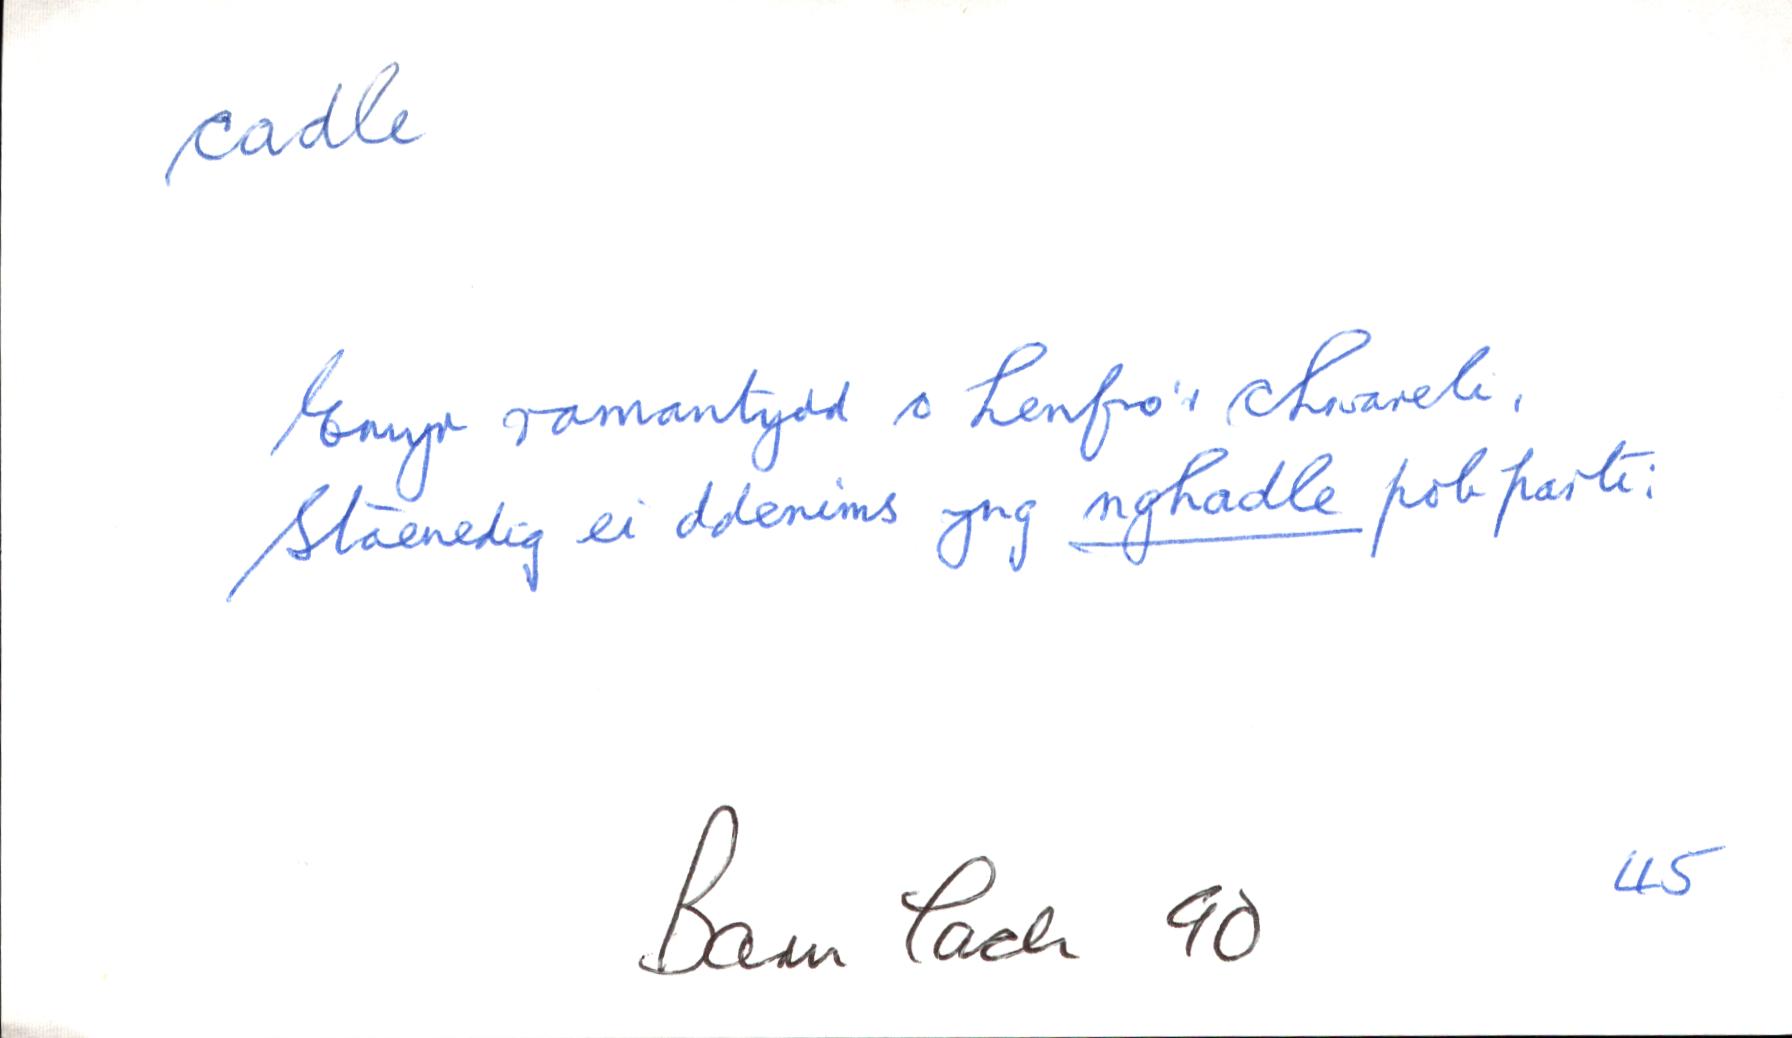 cadle
Emyr ramantydd o henfro'r chwareli,
Stäenedig ei ddenims yng nghadle pob parti:
45
Barn Tach 90